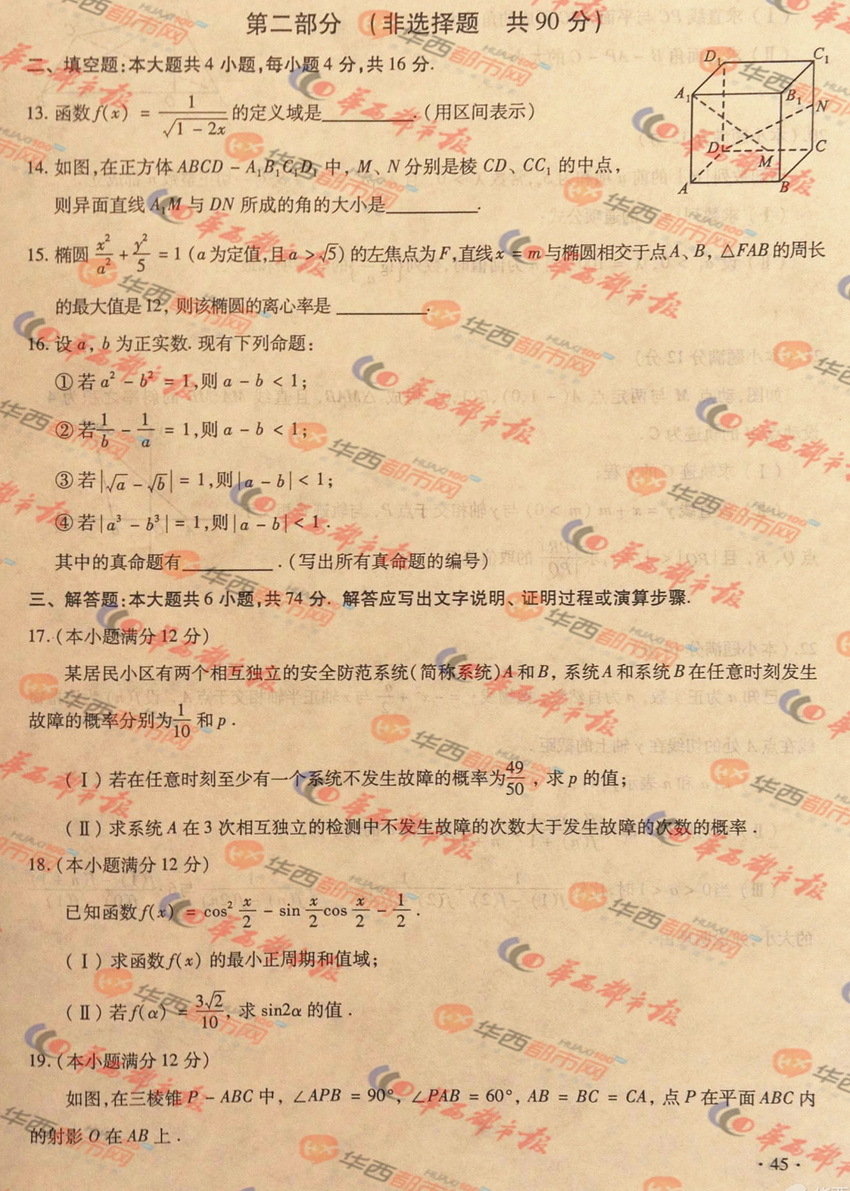 第二部分 (非选择题 共90分)
二、填空题:本大题共4小题,每小题4分,共16分.
13. 函数f(x) = 1/√(1-2x) 的定义域是________.(用区间表示)
14. 如图,在正方体ABCD-A₁B₁C₁D₁中, M、N分别是棱CD、CC₁的中点,
则异面直线A₁M与DN所成的角的大小是________.
D₁ C₁
A₁ B₁ N
D M C
A B
15. 椭圆 x²/a² + y²/5 = 1 (a为定值,且a > √5) 的左焦点为F,直线x = m与椭圆相交于点A、B, △FAB的周长
的最大值是12, 则该椭圆的离心率是________.
16. 设a, b为正实数. 现有下列命题:
①若a² - b² = 1,则a - b < 1;
②若1/b - 1/a = 1,则a - b < 1;
③若|√a - √b| = 1,则|a - b| < 1;
④若|a³ - b³| = 1,则|a - b| < 1.
其中的真命题有________.(写出所有真命题的编号)
三、解答题:本大题共6小题,共74分. 解答应写出文字说明、证明过程或演算步骤.
17.(本小题满分12分)
某居民小区有两个相互独立的安全防范系统(简称系统)A和B, 系统A和系统B在任意时刻发生
故障的概率分别为1/10和p.
(Ⅰ)若在任意时刻至少有一个系统不发生故障的概率为49/50, 求p的值;
(Ⅱ)求系统A在3次相互独立的检测中不发生故障的次数大于发生故障的次数的概率.
18.(本小题满分12分)
已知函数f(x) = cos² x/2 - sin x/2 cos x/2 - 1/2.
(Ⅰ)求函数f(x)的最小正周期和值域;
(Ⅱ)若f(α) = 3√2/10, 求sin2α的值.
19.(本小题满分12分)
如图,在三棱锥P-ABC中, ∠APB = 90°, ∠PAB = 60°, AB = BC = CA, 点P在平面ABC内
的射影O在AB上.
·45·
华西都市报
华西都市网
HUAXI100